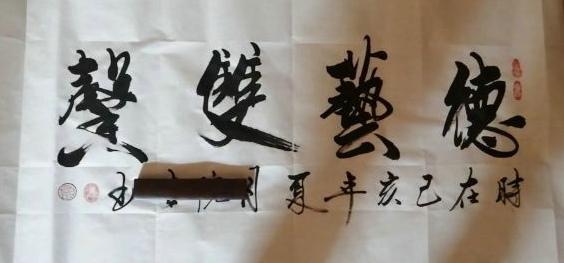 德藝雙馨
時在己亥年夏月